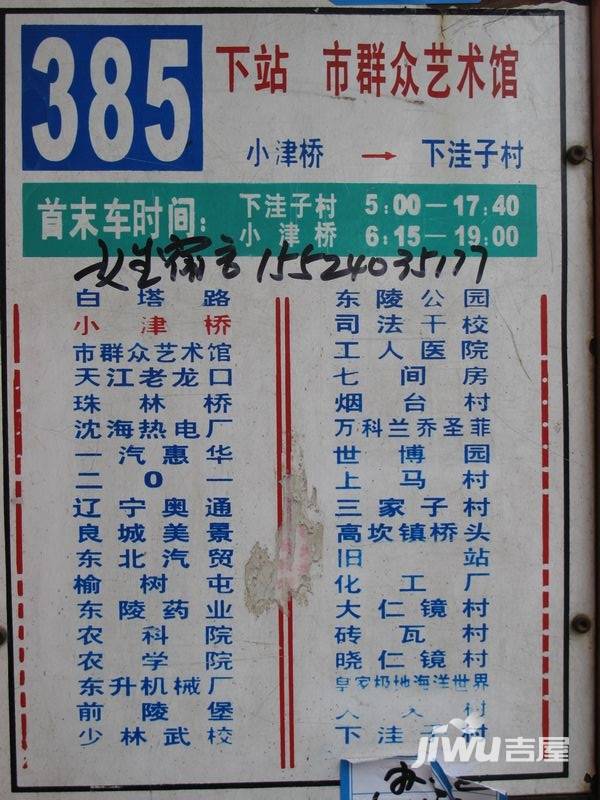 385
下站 市群众艺术馆
小津桥 → 下洼子村
首末车时间：
下洼子村 5:00—17:40
小津桥 6:15—19:00
女生宿舍 15524035177
白塔路
小津桥
市群众艺术馆
天江老龙口
珠林桥
沈海热电厂
一汽惠华
二0一
辽宁奥通
良城美景
东北汽贸
榆树屯
东陵药业
农科院
农学院
东升机械厂
前陵堡
少林武校
东陵公园
司法干校
工人医院
七间房
烟台村
万科兰乔圣菲
世博园
上马村
三家子村
高坎镇桥头
旧站
化工厂
大仁镜村
砖瓦村
晓仁镜村
皇家极地海洋世界
村
下洼子村
jiwu吉屋